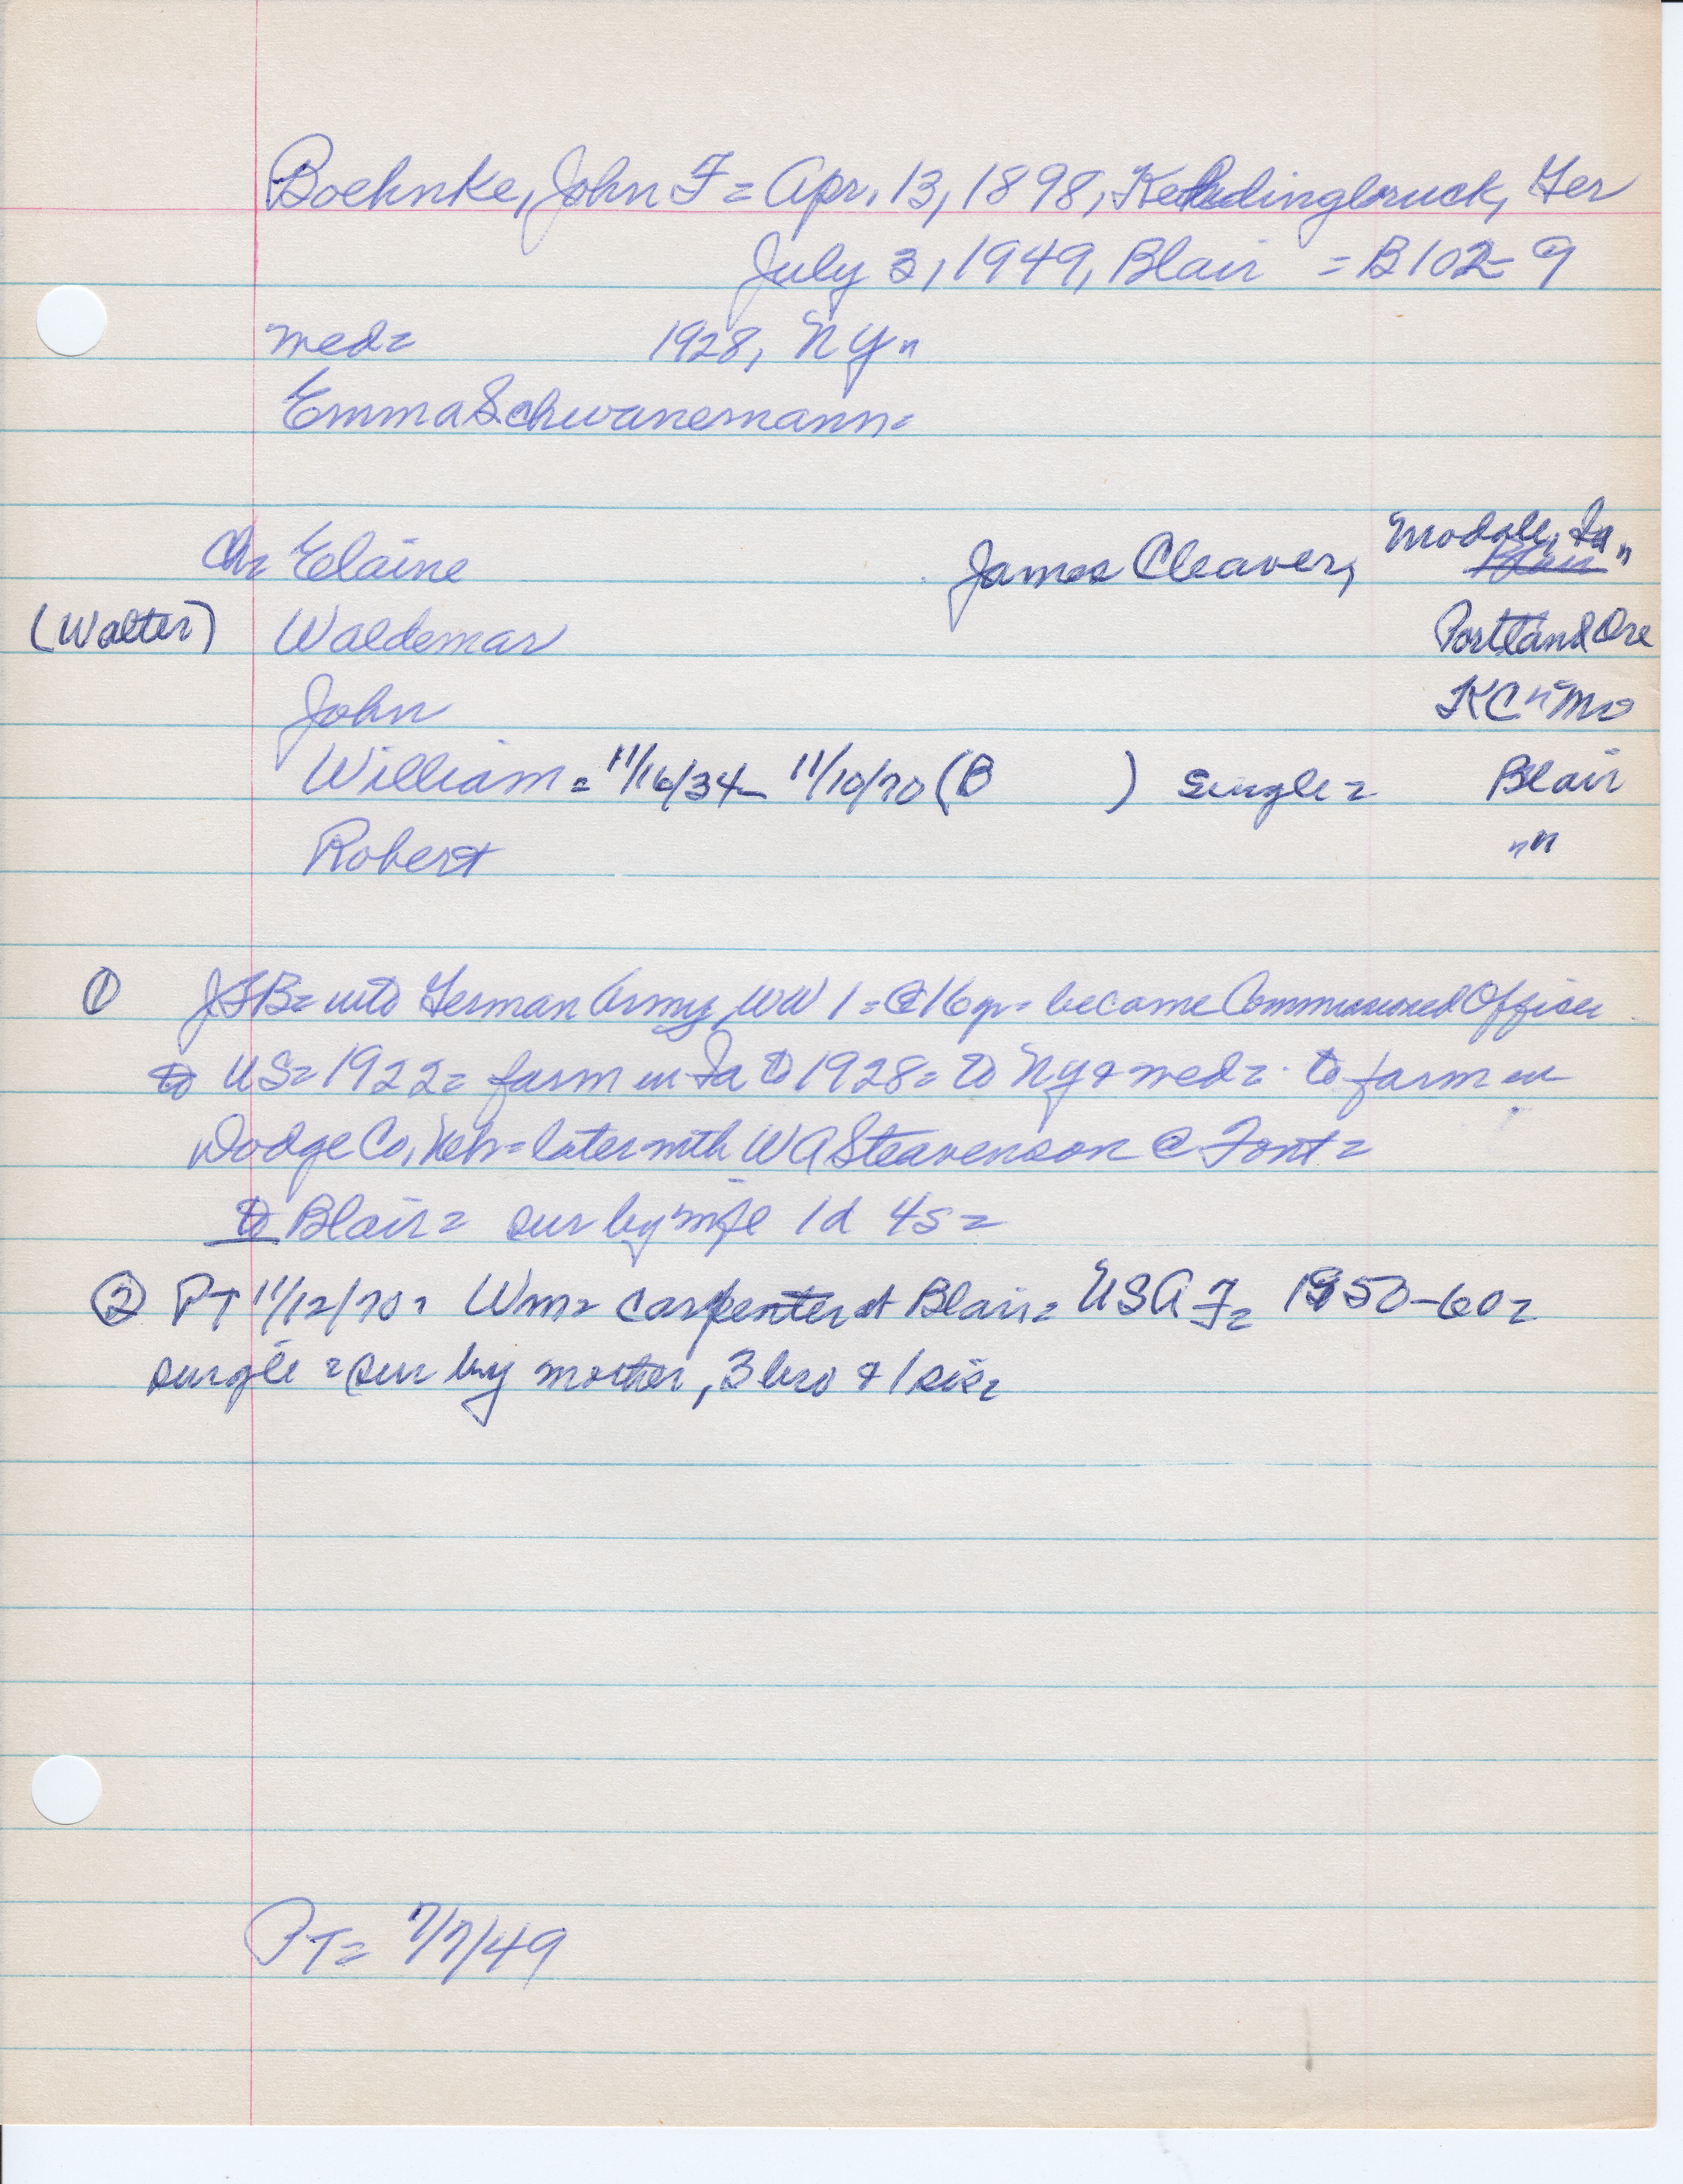 Boehnke, John F = Apr. 13, 1898, Kehdingbruck, Ger
July 3, 1949, Blair = B102-9
med= 1928, NY"
Emma Schwanemann=
Ch= Elaine James Cleaver, Modale, Ia" Blair
(Walter) Waldemar Portland Ore
John KC" Mo
William = 11/16/34 - 11/10/70 (B ) single = Blair
Robert ""
① JFB= into German Army, WW 1 = @ 16 yr = became Commissioned Officer
to US = 1922 = farm in Ia to 1928 = to NY & med = to farm in
Dodge Co, Neb = later with WA Steavenson @ Font =
to Blair = sur by wife 1d 4s =
② PT 11/12/70 = Wm = carpenter at Blair = USAF = 1950-60 =
single = sur by mother, 3 bro & 1 sis =
PT= 7/7/49